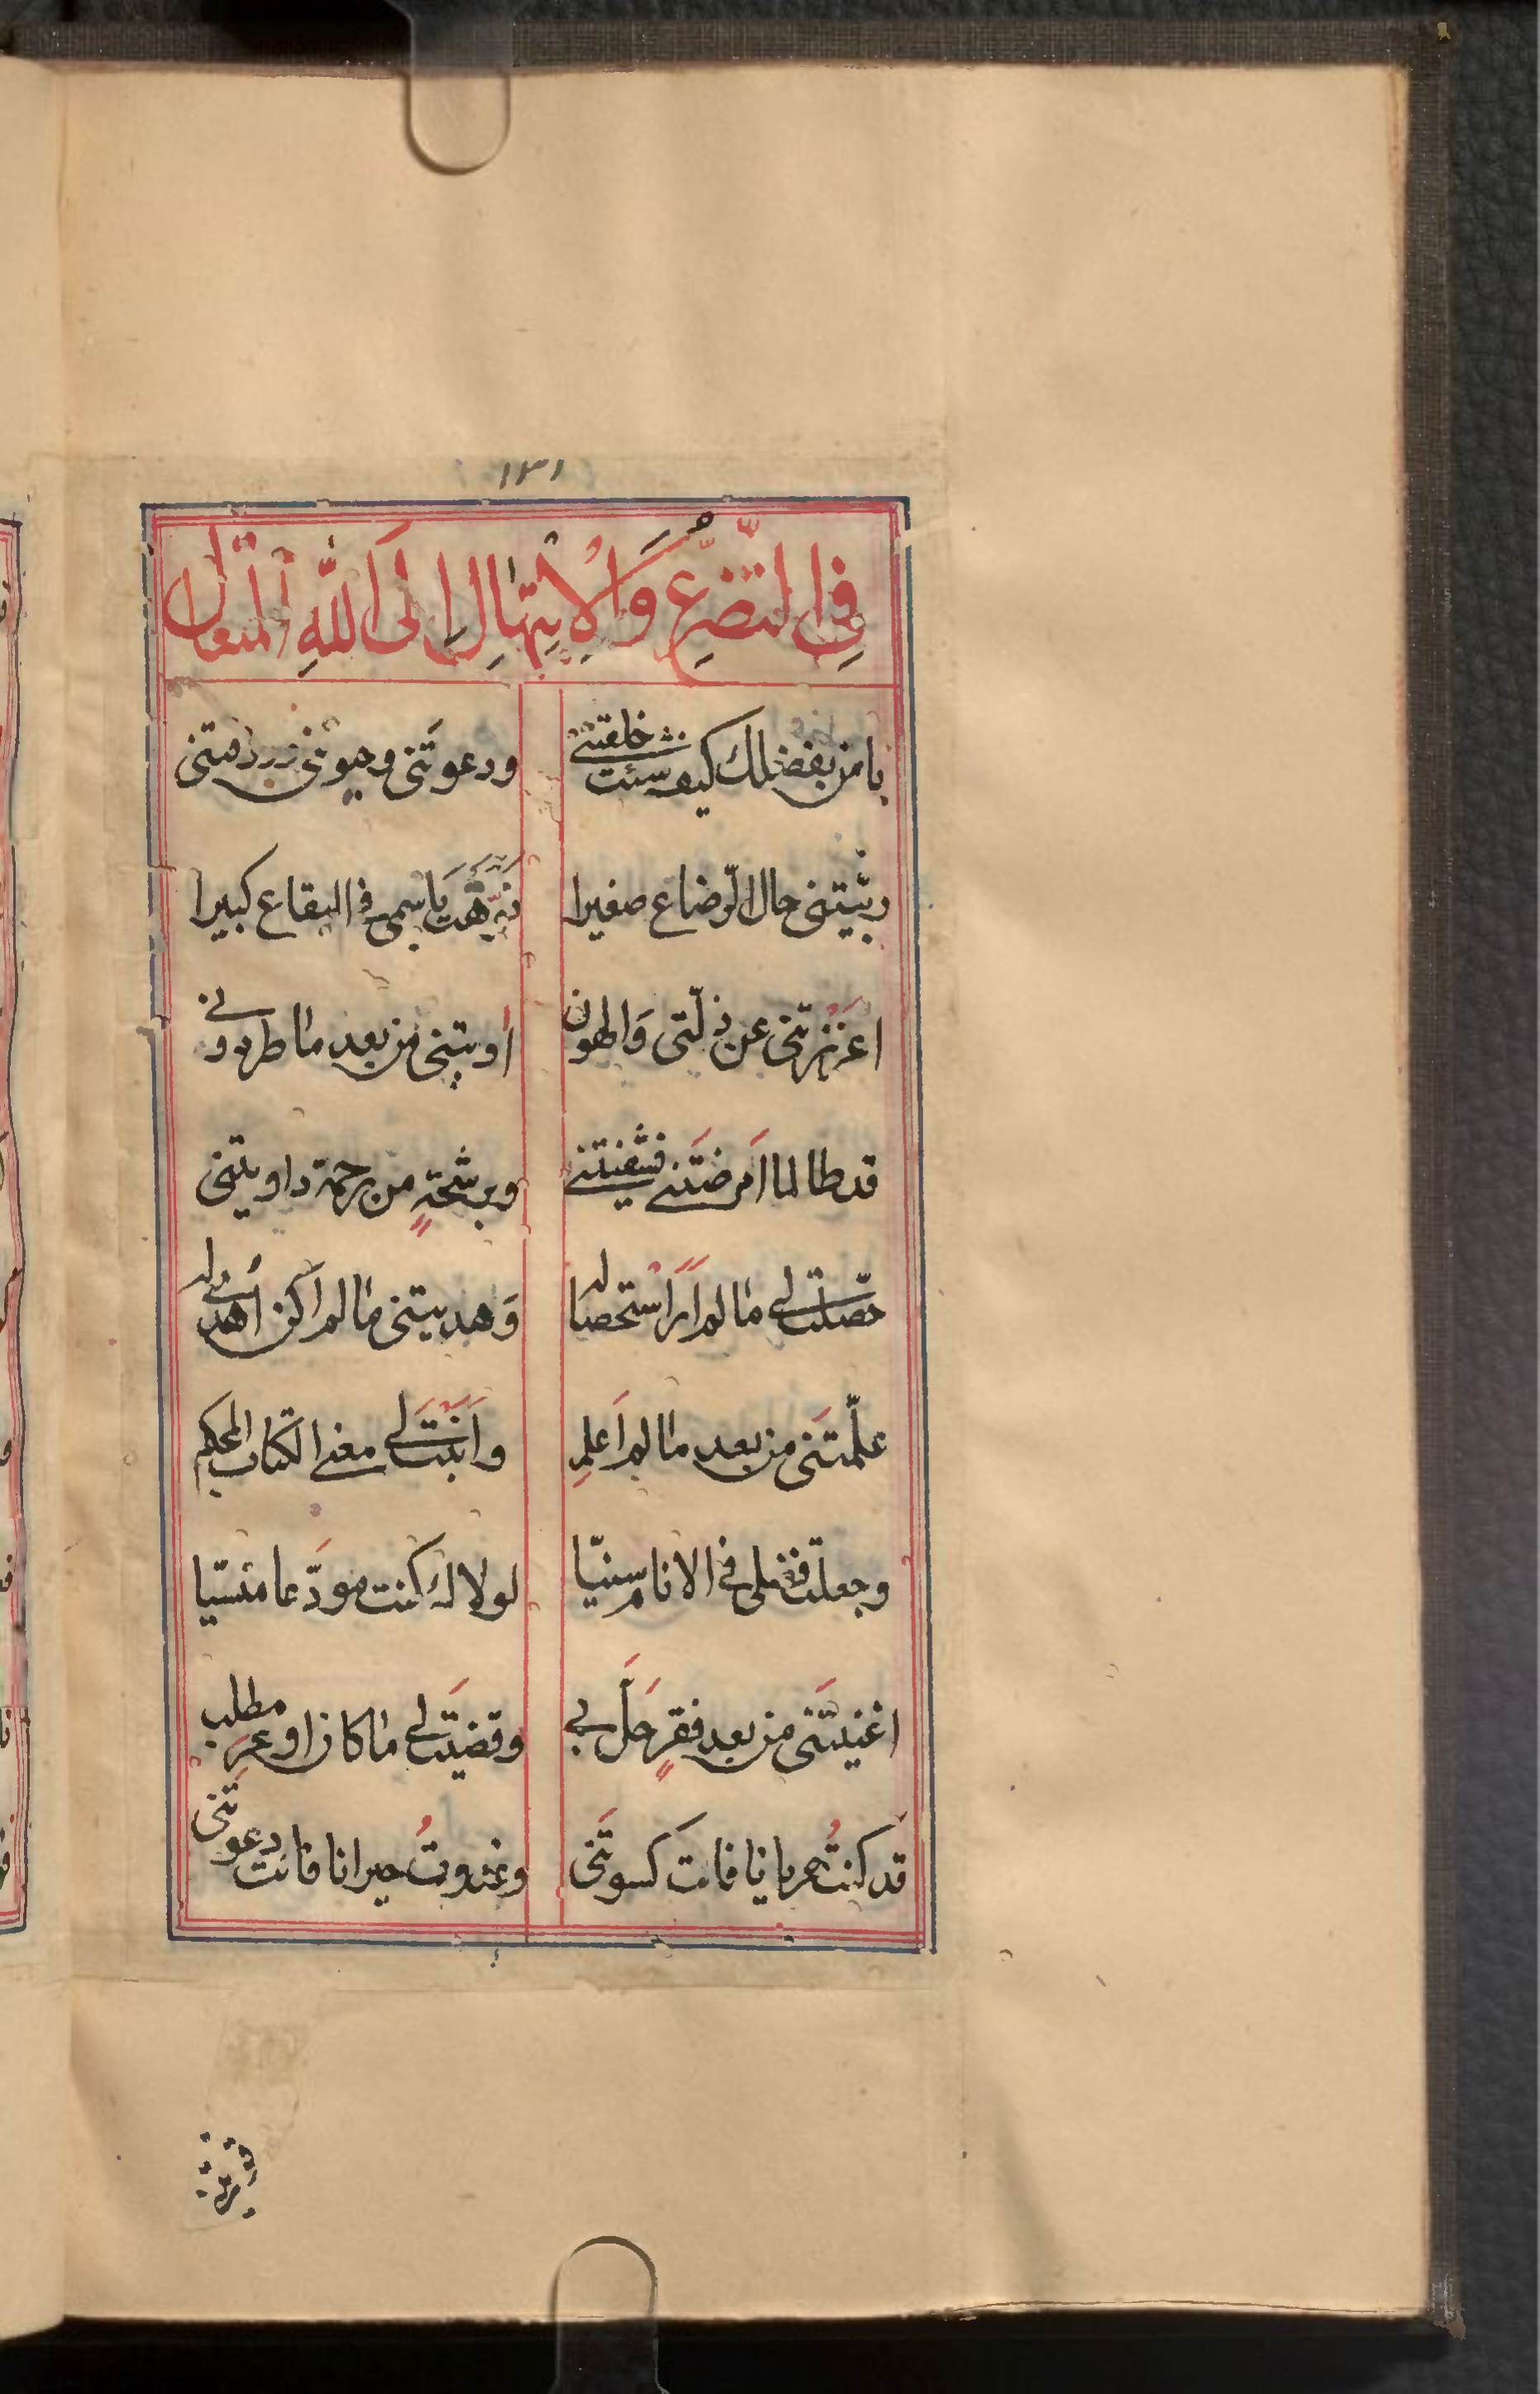 ١٣١
فِي التَّضَرُّعِ وَالْاِبْتِهَالِ اِلَى اللّٰهِ الْمُتَعَال
يا من بفضلك كيف شئت خلقتني ودعوتَني
ربّيتني حال الرّضاع صغيرا نبّهتَ باسمي في البقاع كبيرا
اعززتني عن ذلّتي وَالهون أويتني من بعد ما طردوني
قد طالما اَمرضتَني فشفيتني وبرشحةٍ من رحمة داويتني
حصّلت لي ما لم اَرَ استحصاله وَهديتني ما لم اَكن اُهدى له
علّمتَني من بعد ما لم اَعلمِ واَبَنْتَ لي معنى الكتاب المحكم
وجعلتَ فضلي في الانام سنيّا لولاك كنت مودَّعا منسيّا
اغنيتَني من بعد فقرٍ حَلَّ بي وقضيتَ لي ما كان اوعر مطلب
قد كنتُ عريانا فانتَ كسوتَني وغدوتُ حيرانا فانت دعوتَني